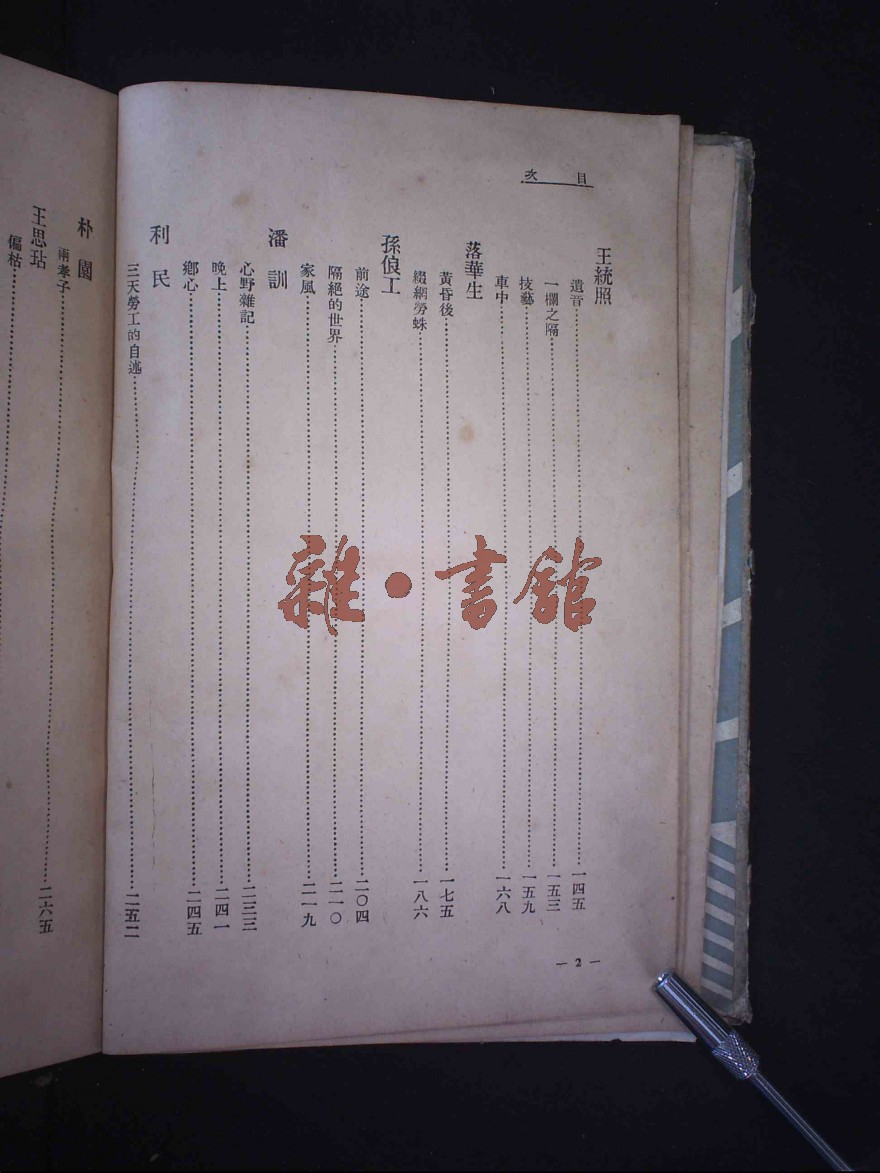 目次
王統照
遺音……一四五
一欄之隔……一五三
技藝……一五九
車中……一六八
落華生
黃昏後……一七五
綴網勞蛛……一八六
孫俍工
前途……二〇四
隔絕的世界……二一〇
家風……二一九
潘訓
心野雜記……二三三
晚上……二四一
鄉心……二四五
利民
三天勞工的自述……二五二
— 2 —
朴園
兩孝子……二六五
王思玷
偏枯……
雜·書館